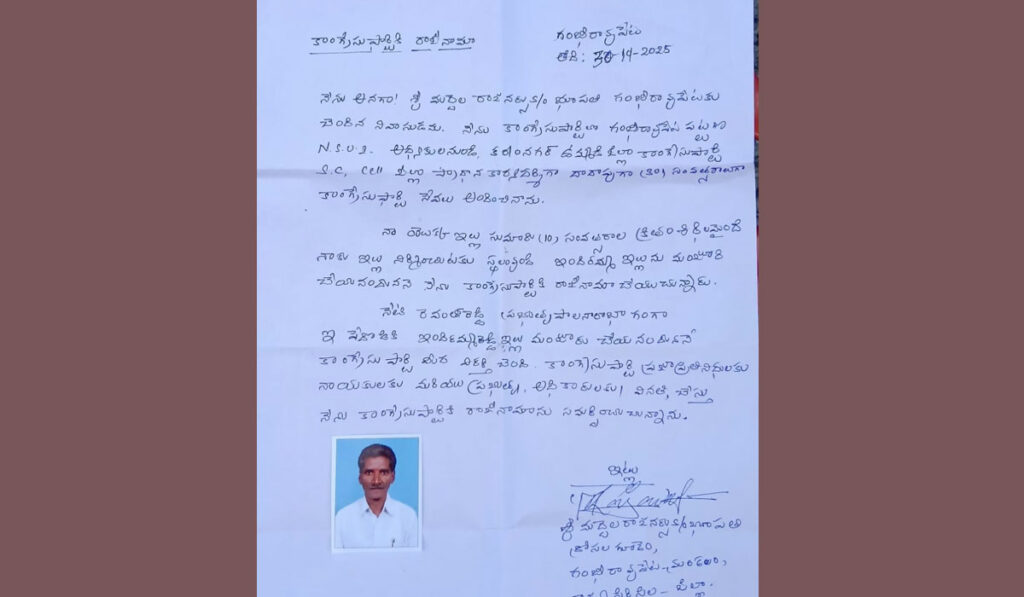 కాంగ్రేసుపార్టీకి రాజీనామా
గంభీరావుపేట
తేది: 30 14-2025
నేను అనగా! శ్రీ రాజనర్సు S/o భూపతి గంభీరావుపేటకు
చెందిన నివాసుడను. నేను కాంగ్రేసుపార్టీలో గంభీరావుపేట పట్టణ
N.S.U.I. కరీంనగర్ ఉమ్మడి జిల్లా కాంగ్రేసుపార్టి
S.C, Cell జిల్లా ప్రధాన కార్యదర్శిగా దాదాపుగా (30) సంవత్సరాలుగా
కాంగ్రేసుపార్టి సేవలు అందించినాను.
నా ఇల్లు సుమారు (10) సంవత్సరాల క్రితం
నాకు ఇల్లు నిర్మించుటకు ఇందిరమ్మ ఇల్లును మంజూరి
నేను కాంగ్రేసుపార్టికి రాజీనామా చేయుచున్నాను.
నేటి రేవంత్‌రెడ్డి
ఈ ఇందిరమ్మ ఇల్లు మంజూరు
కాంగ్రేసు పార్టి మీద విరక్తి చెంది. కాంగ్రేసుపార్టి ప్రజాప్రతినిధులకు
నాయకులకు మరియు ప్రభుత్వ, అధికారులకు వినతి, చేస్తు
నేను కాంగ్రేసుపార్టికి రాజీనామాను సమర్పించుచున్నాను.
ఇట్లు
శ్రీ రాజనర్సు S/o భూపతి
గంభీరావుపేట-మండలం,
జిల్లా.